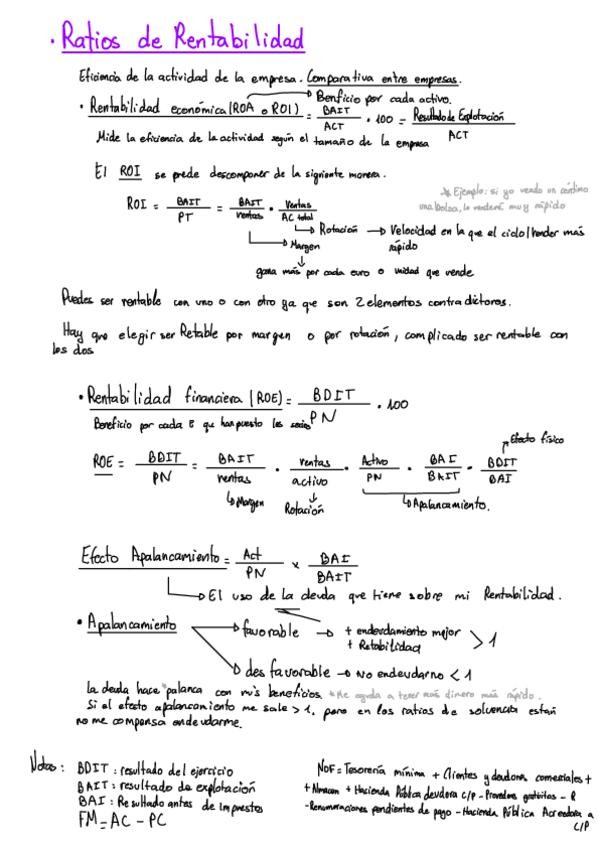 · Ratios de Rentabilidad
Eficiencia de la actividad de la empresa. Comparativa entre empresas.
→ Benficio por cada activo.
· Rentabilidad económica (ROA o ROI) = BAIT / ACT · 100 = Resultado de Explotación / ACT
Mide la eficiencia de la actividad según el tamaño de la empresa
El ROI se prede descomponer de la siguiente manera.
* Ejemplo: si yo vendo un céntimo
una bolsa, lo venderé muy rápido
ROI = BAIT / PT = BAIT / ventas · Ventas / AC total
→ Rotación → Velocidad en la que el ciclo/vender más
rápido
→ Margen
↓
gana más por cada euro o unidad que vende
Puedes ser rentable con uno o con otro ya que son 2 elementos contradictoros.
Hay que elegir ser Retable por margen o por rotación, complicado ser rentable con
los dos
· Rentabilidad financiera (ROE) = BDIT / PN · 100
Beneficio por cada € que han puesto los socios
→ Efecto físico
ROE = BDIT / PN = BAIT / ventas · ventas / activo · Activo / PN · BAI / BAIT · BDIT / BAI
→ Margen ↓ Rotación → Apalancamiento.
Efecto Apalancamiento = Act / PN x BAI / BAIT
→ El uso de la deuda que tiene sobre mi Rentabilidad.
· Apalancamiento → favorable → + endeudamiento mejor
+ Retabilidad > 1
→ desfavorable → No endeudarno < 1
la deuda hace "palanca con mis beneficios. *Me ayuda a tener más dinero más rápido.
Si el efecto apalancamiento me sale > 1, pero en los ratios de solvencia están
no me compensa endeudarme.
Notas: BDIT: resultado del ejercicio
BAIT: resultado de explotación
BAI: Resultado antes de Impestos
FM = AC - PC
NOF = Tesorería mínima + Clientes y deudores comerciales +
+ Almacen + Hacienda Pública deudora c/p - Provedores - R
- Renumeraciones pendientes de pago - Hacienda Pública Acreedora a
c/p